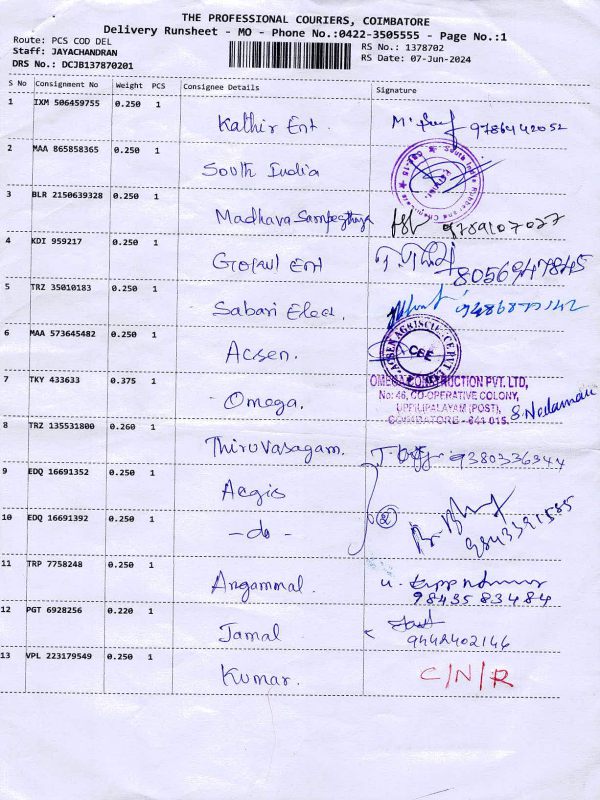 THE PROFESSIONAL COURIERS, COIMBATORE
Delivery Runsheet - MO - Phone No.:0422-3505555 - Page No.:1
Route: PCS COD DEL
Staff: JAYACHANDRAN
DRS No.: DCJB137870201
RS No.: 1378702
RS Date: 07-Jun-2024
S No Consignment No Weight PCS Consignee Details Signature
1 IXM 506459755 0.250 1 Kathir Ent. 9786442052
2 MAA 865858365 0.250 1 South India
3 BLR 2150639328 0.250 1 Madhava 9789107027
4 KDI 959217 0.250 1 Gopal Ent 8056947845
5 TRZ 35010183 0.250 1 Sabari Elect.
6 MAA 573645482 0.250 1 Acsen. CBE
7 TKY 433633 0.375 1 Omega.
OMEGA CONSTRUCTION PVT. LTD,
No: 46, CO-OPERATIVE COLONY,
UPPILIPALAYAM (POST),
COIMBATORE - 641 015.
8 TRZ 135531800 0.260 1 Thiruvasagam. 9380336344
9 EDQ 16691352 0.250 1 Aegis
10 EDQ 16691392 0.250 1 - do - 2
11 TRP 7758248 0.250 1 Angammal. 9843583484
12 PGT 6928256 0.220 1 Jamal 9442402146
13 VPL 223179549 0.250 1 Kumar. C/N/R